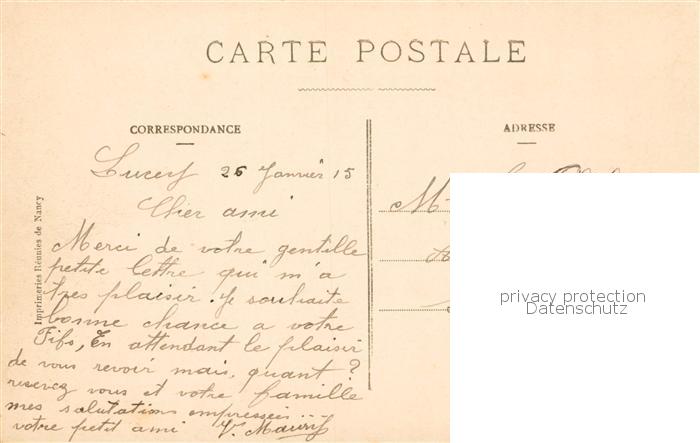 CARTE POSTALE
CORRESPONDANCE
26 Janvier 15
Cher ami
Merci de votre gentille
petite lettre qui m'a
tres plaisir. Je souhaite
bonne chance a votre
Fifs, En attendant le plaisir
de vous revoir mais, quant?
resevez vous et votre famille
mes salutations empressées
votre petit ami V.
Imprimeries Réunies de Nancy
ADRESSE
M
privacy protection
Datenschutz